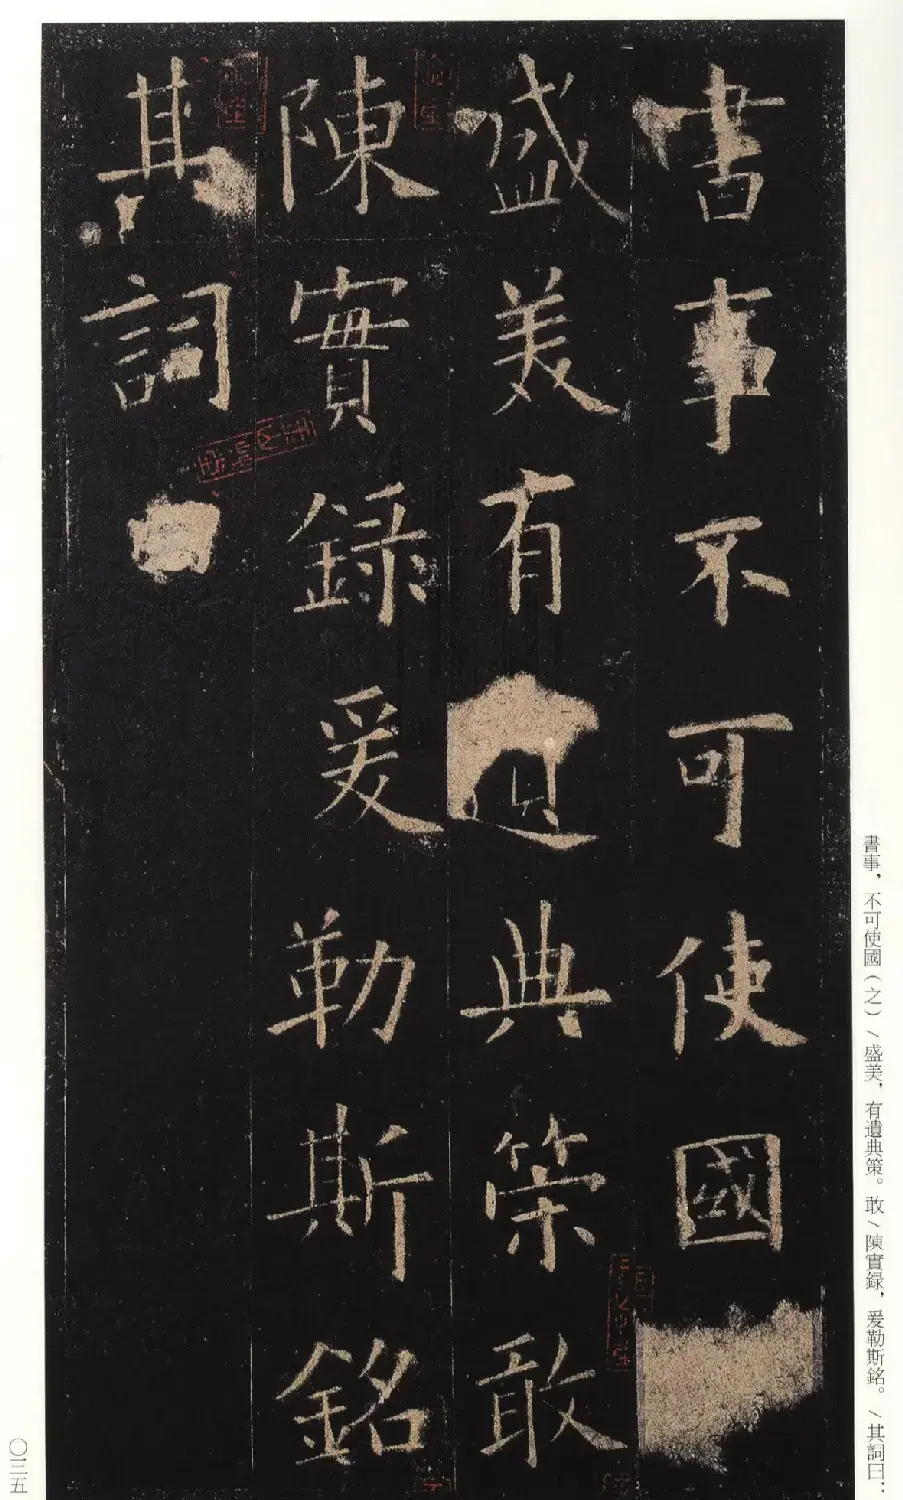 書事不可使國
盛美有遺典策敢
陳實録爰勒斯銘
其詞
書事，不可使國（之）／盛美，有遺典策。敢／陳實録，爰勒斯銘。／其詞曰：
〇三五